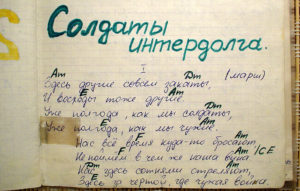 Солдаты
интердолга.
I
Am Dm (марш)
Здесь другие совсем закаты,
E Am
И восходы тоже другие.
Dm
Уже полгода, как мы солдаты,
E Am
Уже полгода, как мы чужие.
F Am
Нас всё время куда-то бросают,
F Am /C E
Не поймём в чем же наша вина
Dm Am
Нас здесь сотнями стреляют,
Здесь за чертой, где чужая война.